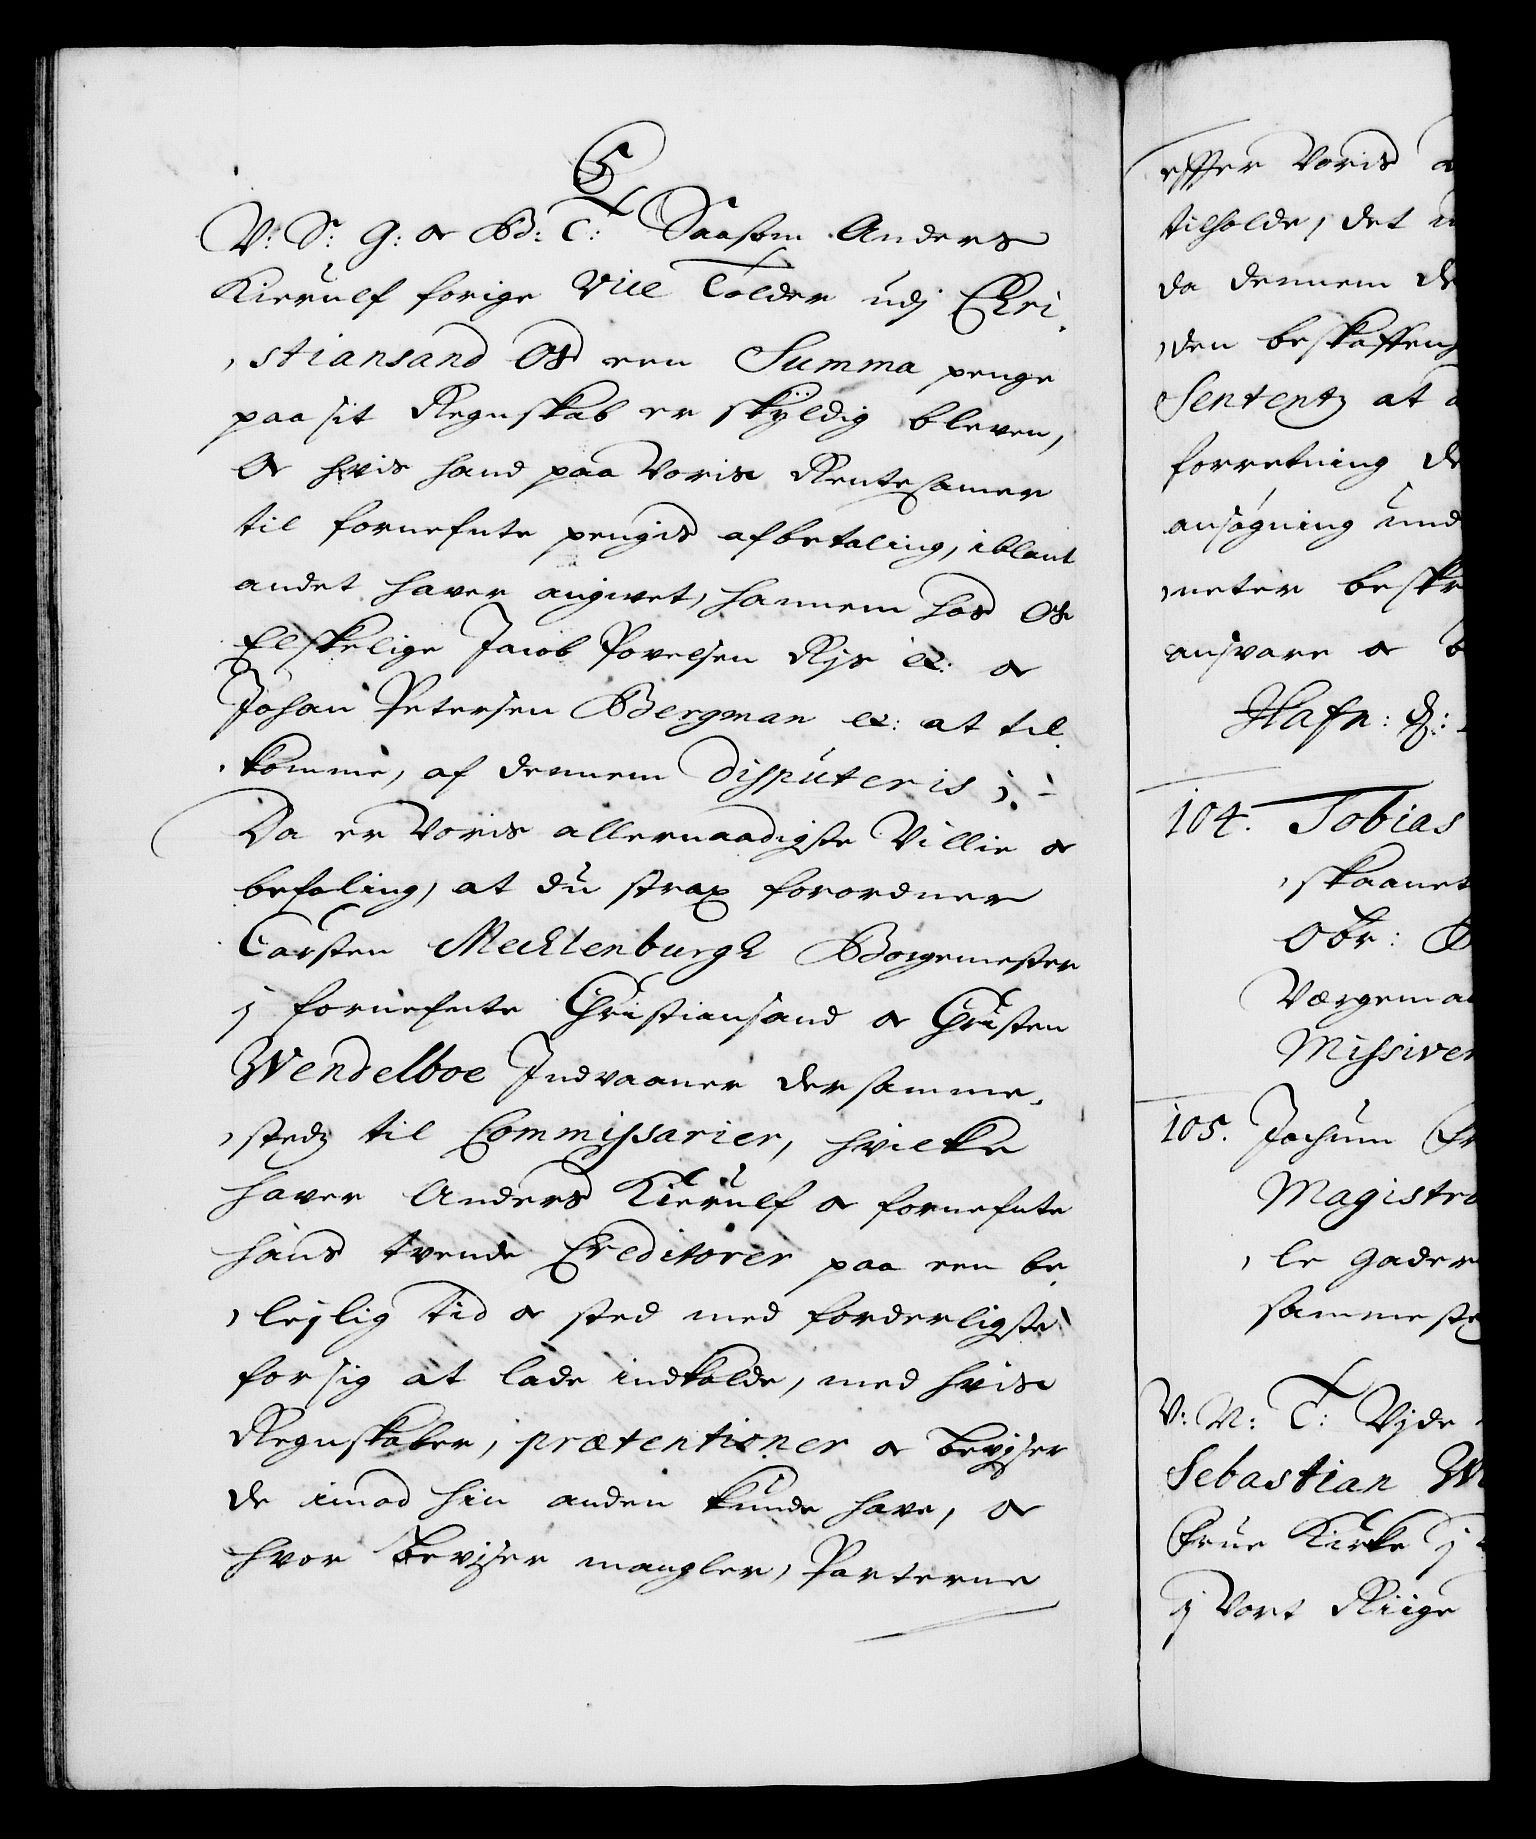 C5
V: S: G: oc B: T: Saasom Anders
Kierulf forige Vice Tolder udj Chri
stiansand Os een Summa penge
paa sit Regnskab er skÿldig bleven,
Oc hvis hand paa Voris Rentecamer
til fornefnte pengis afbetaling, iblant
andet haver angivet, hannem hos Os
Elskelige Jacob Povelsen Rys etc: oc
Johan Petersen Bergman etc: at til
komme, af dennem disputeris;
Da er Voris allernaadigste Villie oc
befaling, at du strax forordner
Carsten Mecklenburgh Borgemester
j fornefnte Christiansand oc Christen
Wendelboe Indvaaner dersamme
stedz til Commissarier, hvilke
haver Anders Kierulf oc fornefnte
hans tvende Creditorer paa een be
lejlig tid oc sted med forderligste
for sig at lade indkalde, med hvis
Regnskaber, prætentioner oc Beviser
de imod hin anden kunde have, oc
hvor Beviser mangler, Parterne
effter Voris
tilholde, det
da dennem
den beskaffen
Sententz at
forretning
ansøgning und
meter beskr
ansvare oc
Hafn: d:
104. Tobias
skaanet
Obr:
Værgema
Missiven
105. Jochum
Magistra
le gader
sammeste
V: N: T: Vijde
Sebastian
Frue Kirke j
j Vort Riige